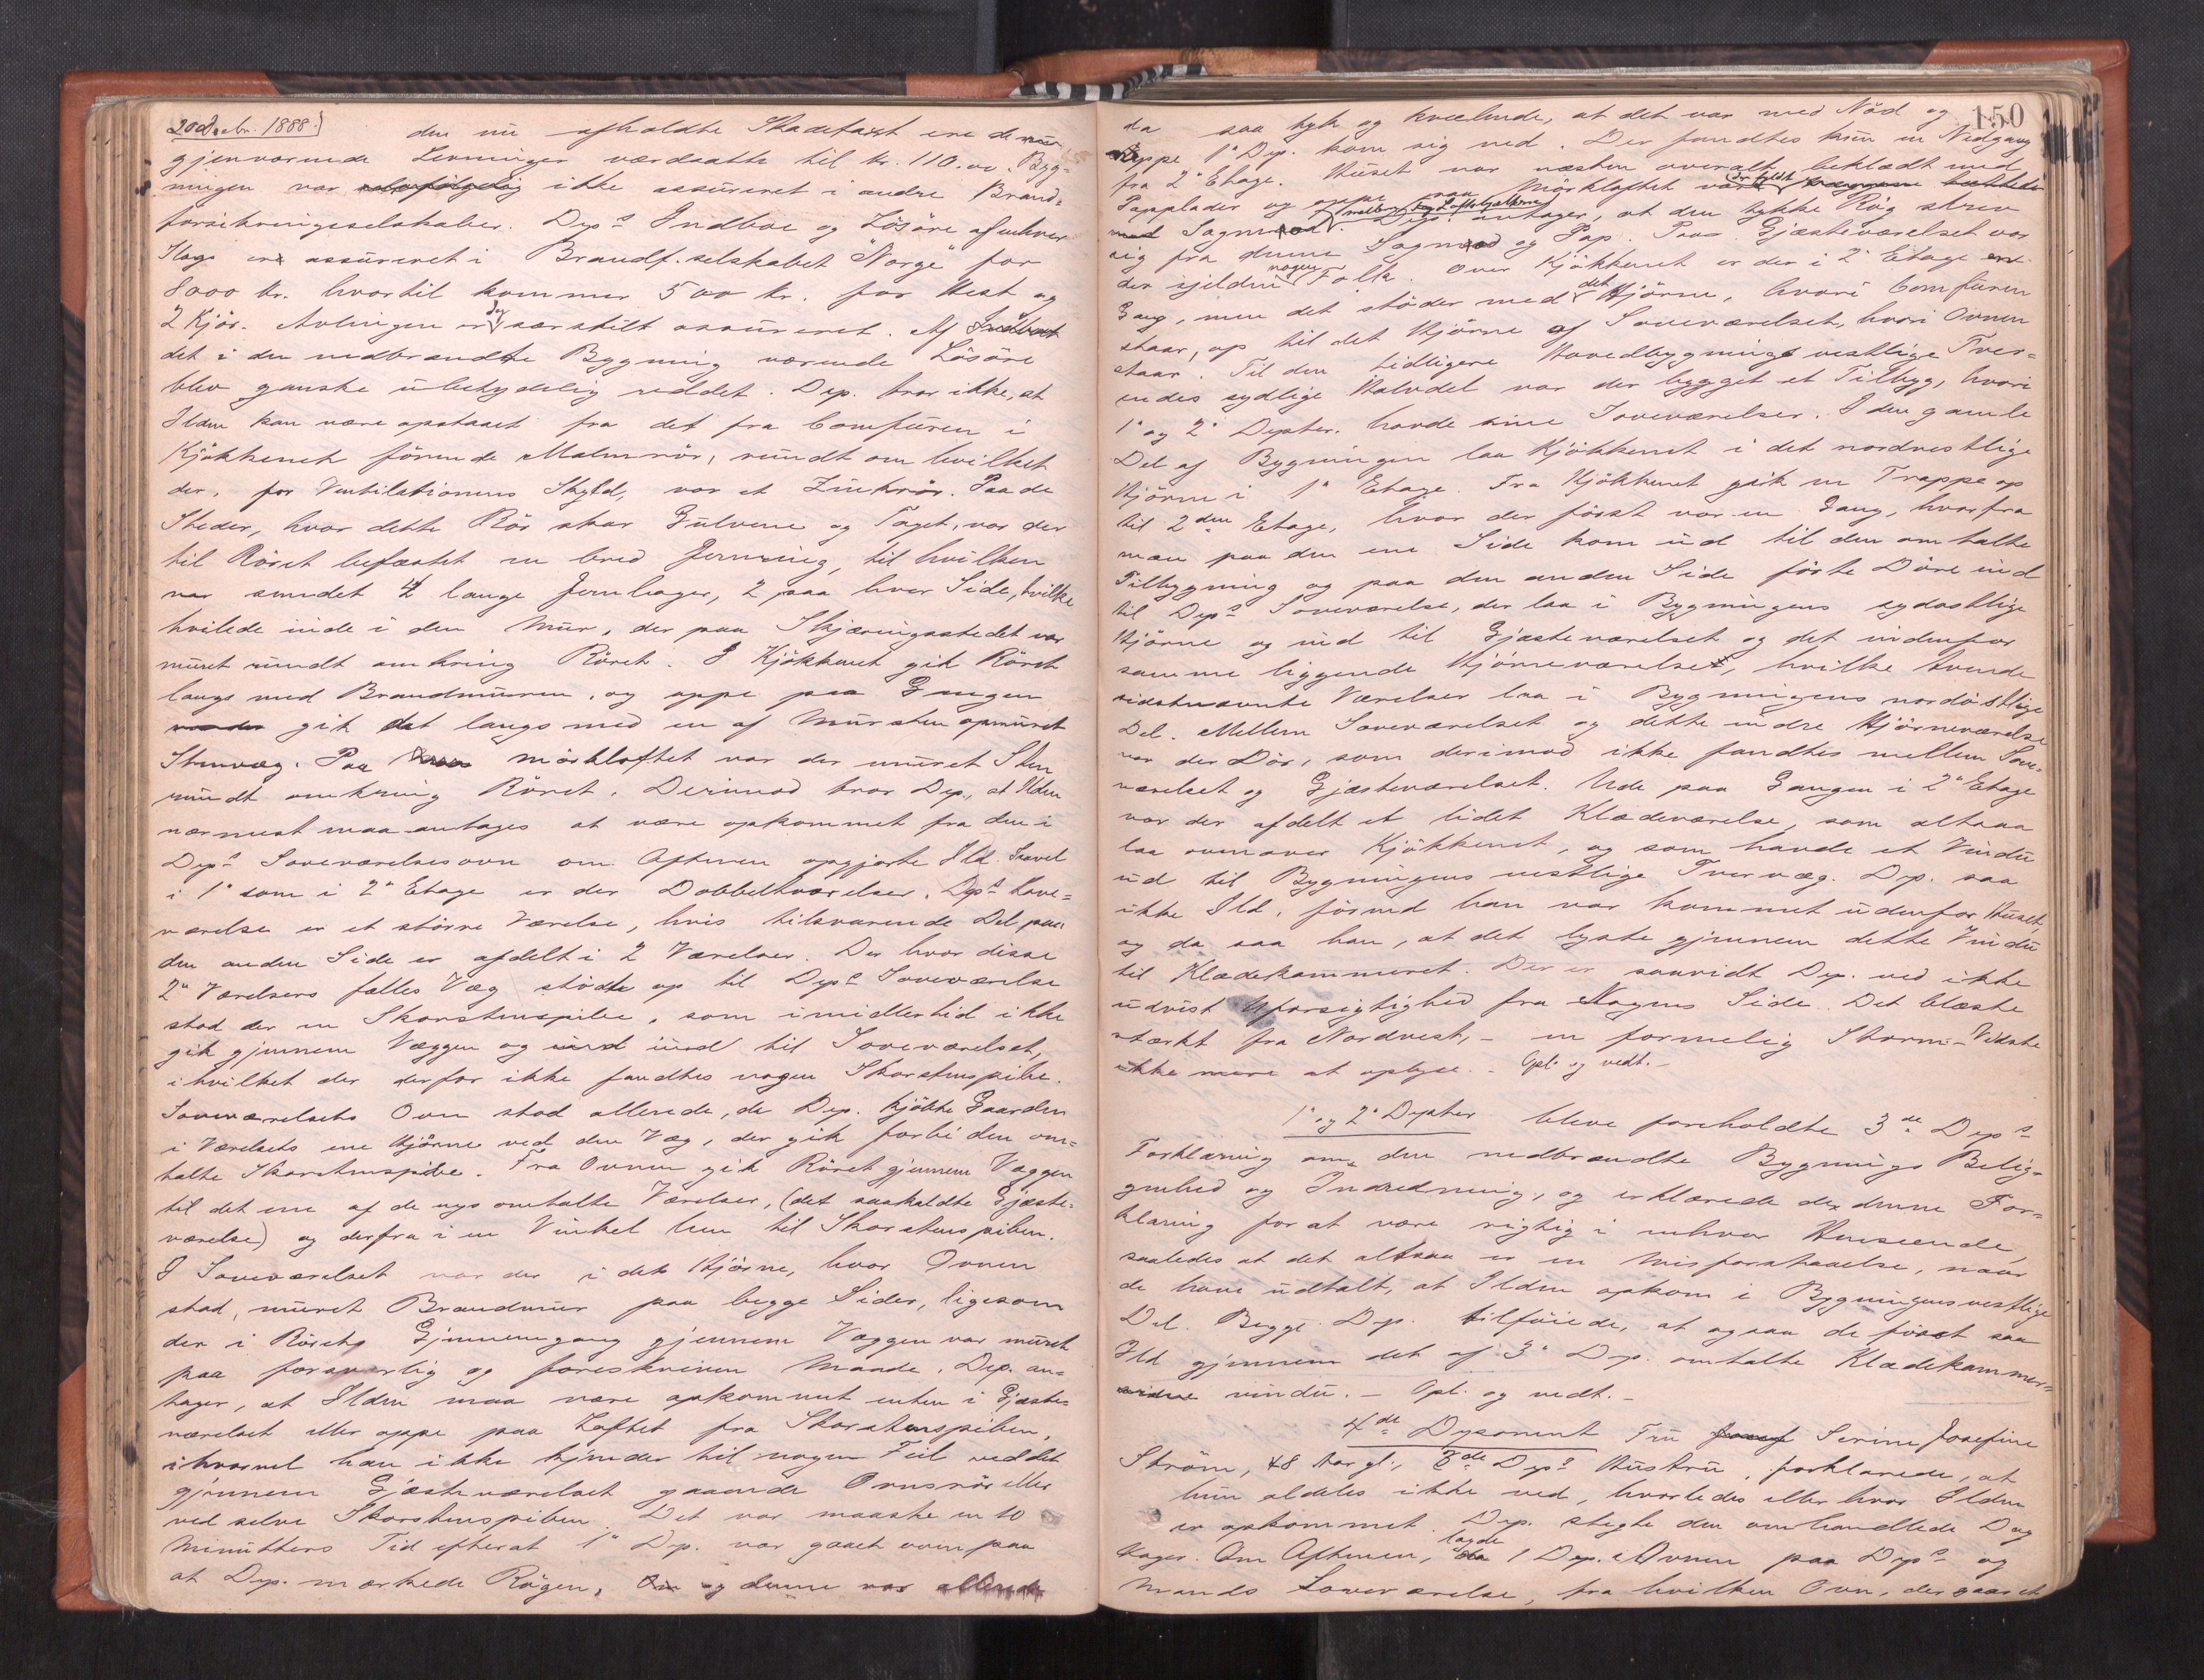 20 Decbr. 1888.
den nu afholdte Skadetaxt ere de
gjenværende Levninger værdsatte til Kr. 110.00. Byg-
ningen var selvfølgelig ikke assureret i andre Brand-
forsikringsselskaber. Dep.s Indboe og Løsøre af enhver
Slags er assureret i Brandf. selskabet "Norge" for
8000 Kr. hvortil kommer 500 Kr. for Hest og
2 Kjør. Avlingen er særskilt assureret. Af Indboet
det i den nedbrændte Bygning værende Løsøre
blev ganske ubetydelig reddet. Dep. tror ikke, at
Ilden kan være opstaaet fra det fra Comfuren i
Kjøkkenet førende Malmrør, rundt om hvilket
der, for Ventilationens Skyld, var et Zinkrør. Paa de
Steder, hvor dette Rør skar Gulvene og Taget, var der
til Røret befæstet en bred Jernring, til hvilken
var smedet 4 lange Jernhager, 2 paa hver Side, hvilke
hvilede inde i den Mur, der paa Skjæringsstedet var
muret rundt omkring Røret. I Kjøkkenet gik Røret
langs med Brandmuren, og oppe paa Gangen
gik det langs med en af Mursten opmuret
Stenvæg. Paa mørkloftet var der muret Sten
rundt omkring Røret. Derimod tror Dep., at Ilden
nærmest maa antages at være opkommet fra den i
Dep.s Soveværelsesovn om Aftenen opgjorte Ild. Saavel
i 1ste som i 2den Etage er der Dobbeltværelser. Dep.s Sove-
værelse er et større Værelse, hvis tilsvarende Del paa
den anden Side er afdelt i 2 Værelser. Der hvor disse
2de Værelsers fælles Væg stødte op til Dep.s Soveværelse
stod der en Skorstenspibe, som imidlertid ikke
gik gjennem Væggen og ind til Soveværelset,
i hvilket der derfor ikke fandtes nogen Skorstenspibe.
Soveværelsets Ovn stod allerede, da Dep. kjøbte Gaarden
i Værelsets ene Hjørne ved den Væg, der gik forbi den om-
talte Skorstenspibe. Fra Ovnen gik Røret gjennem Væggen
til det ene af de nys omtalte Værelser, (det saakaldte Gjæste-
værelse) og derfra i en Vinkel hen til Skorstenspiben.
I Soveværelset var der i det Hjørne, hvor Ovnen
stod, muret Brandmur paa begge Sider, ligesom
der i Rørets Gjennemgang gjennem Væggen var muret
paa forsvarlig og foreskreven Maade. Dep. an-
tager, at Ilden maa være opkommet enten i Gjæste-
værelset eller oppe paa Loftet fra Skorstenspiben,
ihvorvel han ikke kjender til nogen Feil ved det
gjennem Gjæsteværelset gaaende Ovnsrør eller
ved selve Skorstenspiben. Det var maaske en 10
Minutters Tid efterat 1ste Dep. var gaaet ovenpaa
at Dep. mærkede Røgen, og denne var allerede
150
da saa tyk og kvælende, at det var med Nød og
neppe 1ste Dep. kom sig ned. Der fandtes kun en Nedgang
fra 2den Etage. Huset var næsten overalt beklædt med
Papplader og oppe paa Mørkloftet var der fyldt
med Sagmod mellem Loftsbjelkerne. Dep. antager, at den tykke Røg skrev
sig fra denne Sagmod og Pap. Paa Gjæsteværelset var
der sjelden nogen Folk. Over Kjøkkenet er der i 2den Etage en
Gang, men det støder med det Hjørne, hvori Comfuren
staar, op til det Hjørne af Soveværelset, hvori Ovnen
staar. Til den tidligere Hovedbygnings vestlige Tver-
endes sydlige Halvdel var der bygget et Tilbyg, hvori
1ste og 2den Depter. havde sine Soveværelser. I den gamle
Del af Bygningen laa Kjøkkenet i det nordvestlige
Hjørne i 1ste Etage. Fra Kjøkkenet gik en Trappe op
til 2den Etage, hvor der først var en Gang, hvorfra
man paa den ene Side kom ud til den omtalte
Tilbygning og paa den anden Side førte Døre ind
til Dep.s Soveværelse, der laa i Bygningens sydostlige
Hjørne og ind til Gjæsteværelset og det indenfor
samme liggende Hjørneværelset, hvilke tvende
sidstnævnte Værelser laa i Bygningens nordøstlige
Del. Mellem Soveværelset og dette indre Hjørneværelse
var der Dør, som derimod ikke fandtes mellem Sove-
værelset og Gjæsteværelset. Ude paa Gangen i 2den Etage
var der afdelt et lidet Klædeværelse, som altsaa
laa ovenover Kjøkkenet, og som havde et Vindu
ud til Bygningens vestlige Tvervæg. Dep. saa
ikke Ild, førend han var kommet udenfor Huset,
og da saa han, at det lyste gjennem dette Vindu
til Klædekammeret. Der er saavidt Dep. ved ikke
udvist Uforsigtighed fra Nogens Side. Det blæste
stærkt fra Nordvest, – en formelig Storm. – Vidste
ikke mere at oplyse. – Opl. og vedt. –
1ste og 2den Depter bleve foreholdte 3de Dep.s
Forklaring om den nedbrændte Bygnings Belig-
genhed og Indredning, og erklærede de denne For-
klaring for at være rigtig i enhver Henseende,
saaledes at det altsaa er en Misforstaaelse, naar
de have udtalt, at Ilden opkom i Bygningens vestlige
Del. Begge Dep. tilføiede, at ogsaa de først saa
Ild gjennem det af 3de Dep. omtalte Klædekammer-
vindu. – Opl. og vedt. –
4de Deponent Fru Serine Josefine
Strøm, 48 Aar gl., 3de Dep.s Hustru, forklarede, at
hun aldeles ikke ved, hvorledes eller hvor Ilden
er opkommet. Dep. stegte den omhandlede Dag
Kager. Om Aftenen, lagde 1 Dep. i Ovnen paa Dep.s og
Mands Soveværelse, fra hvilken Ovn, der gaar et